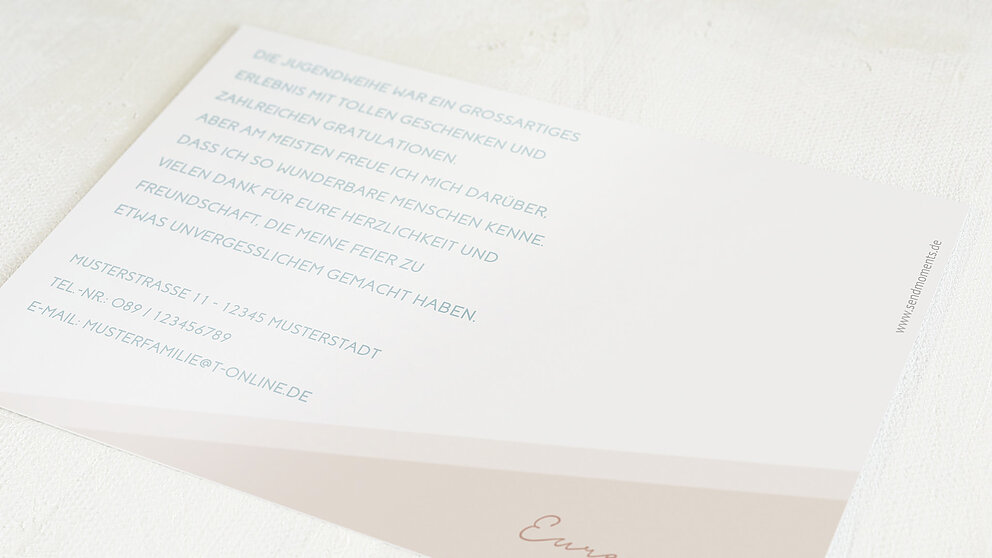 DIE JUGENDWEIHE WAR EIN GROSSARTIGES
ERLEBNIS MIT TOLLEN GESCHENKEN UND
ZAHLREICHEN GRATULATIONEN.
ABER AM MEISTEN FREUE ICH MICH DARÜBER,
DASS ICH SO WUNDERBARE MENSCHEN KENNE.
VIELEN DANK FÜR EURE HERZLICHKEIT UND
FREUNDSCHAFT, DIE MEINE FEIER ZU
ETWAS UNVERGESSLICHEM GEMACHT HABEN.
MUSTERSTRASSE 11 - 12345 MUSTERSTADT
TEL.-NR.: 089 / 123456789
E-MAIL: MUSTERFAMILIE@T-ONLINE.DE
www.sendmoments.de